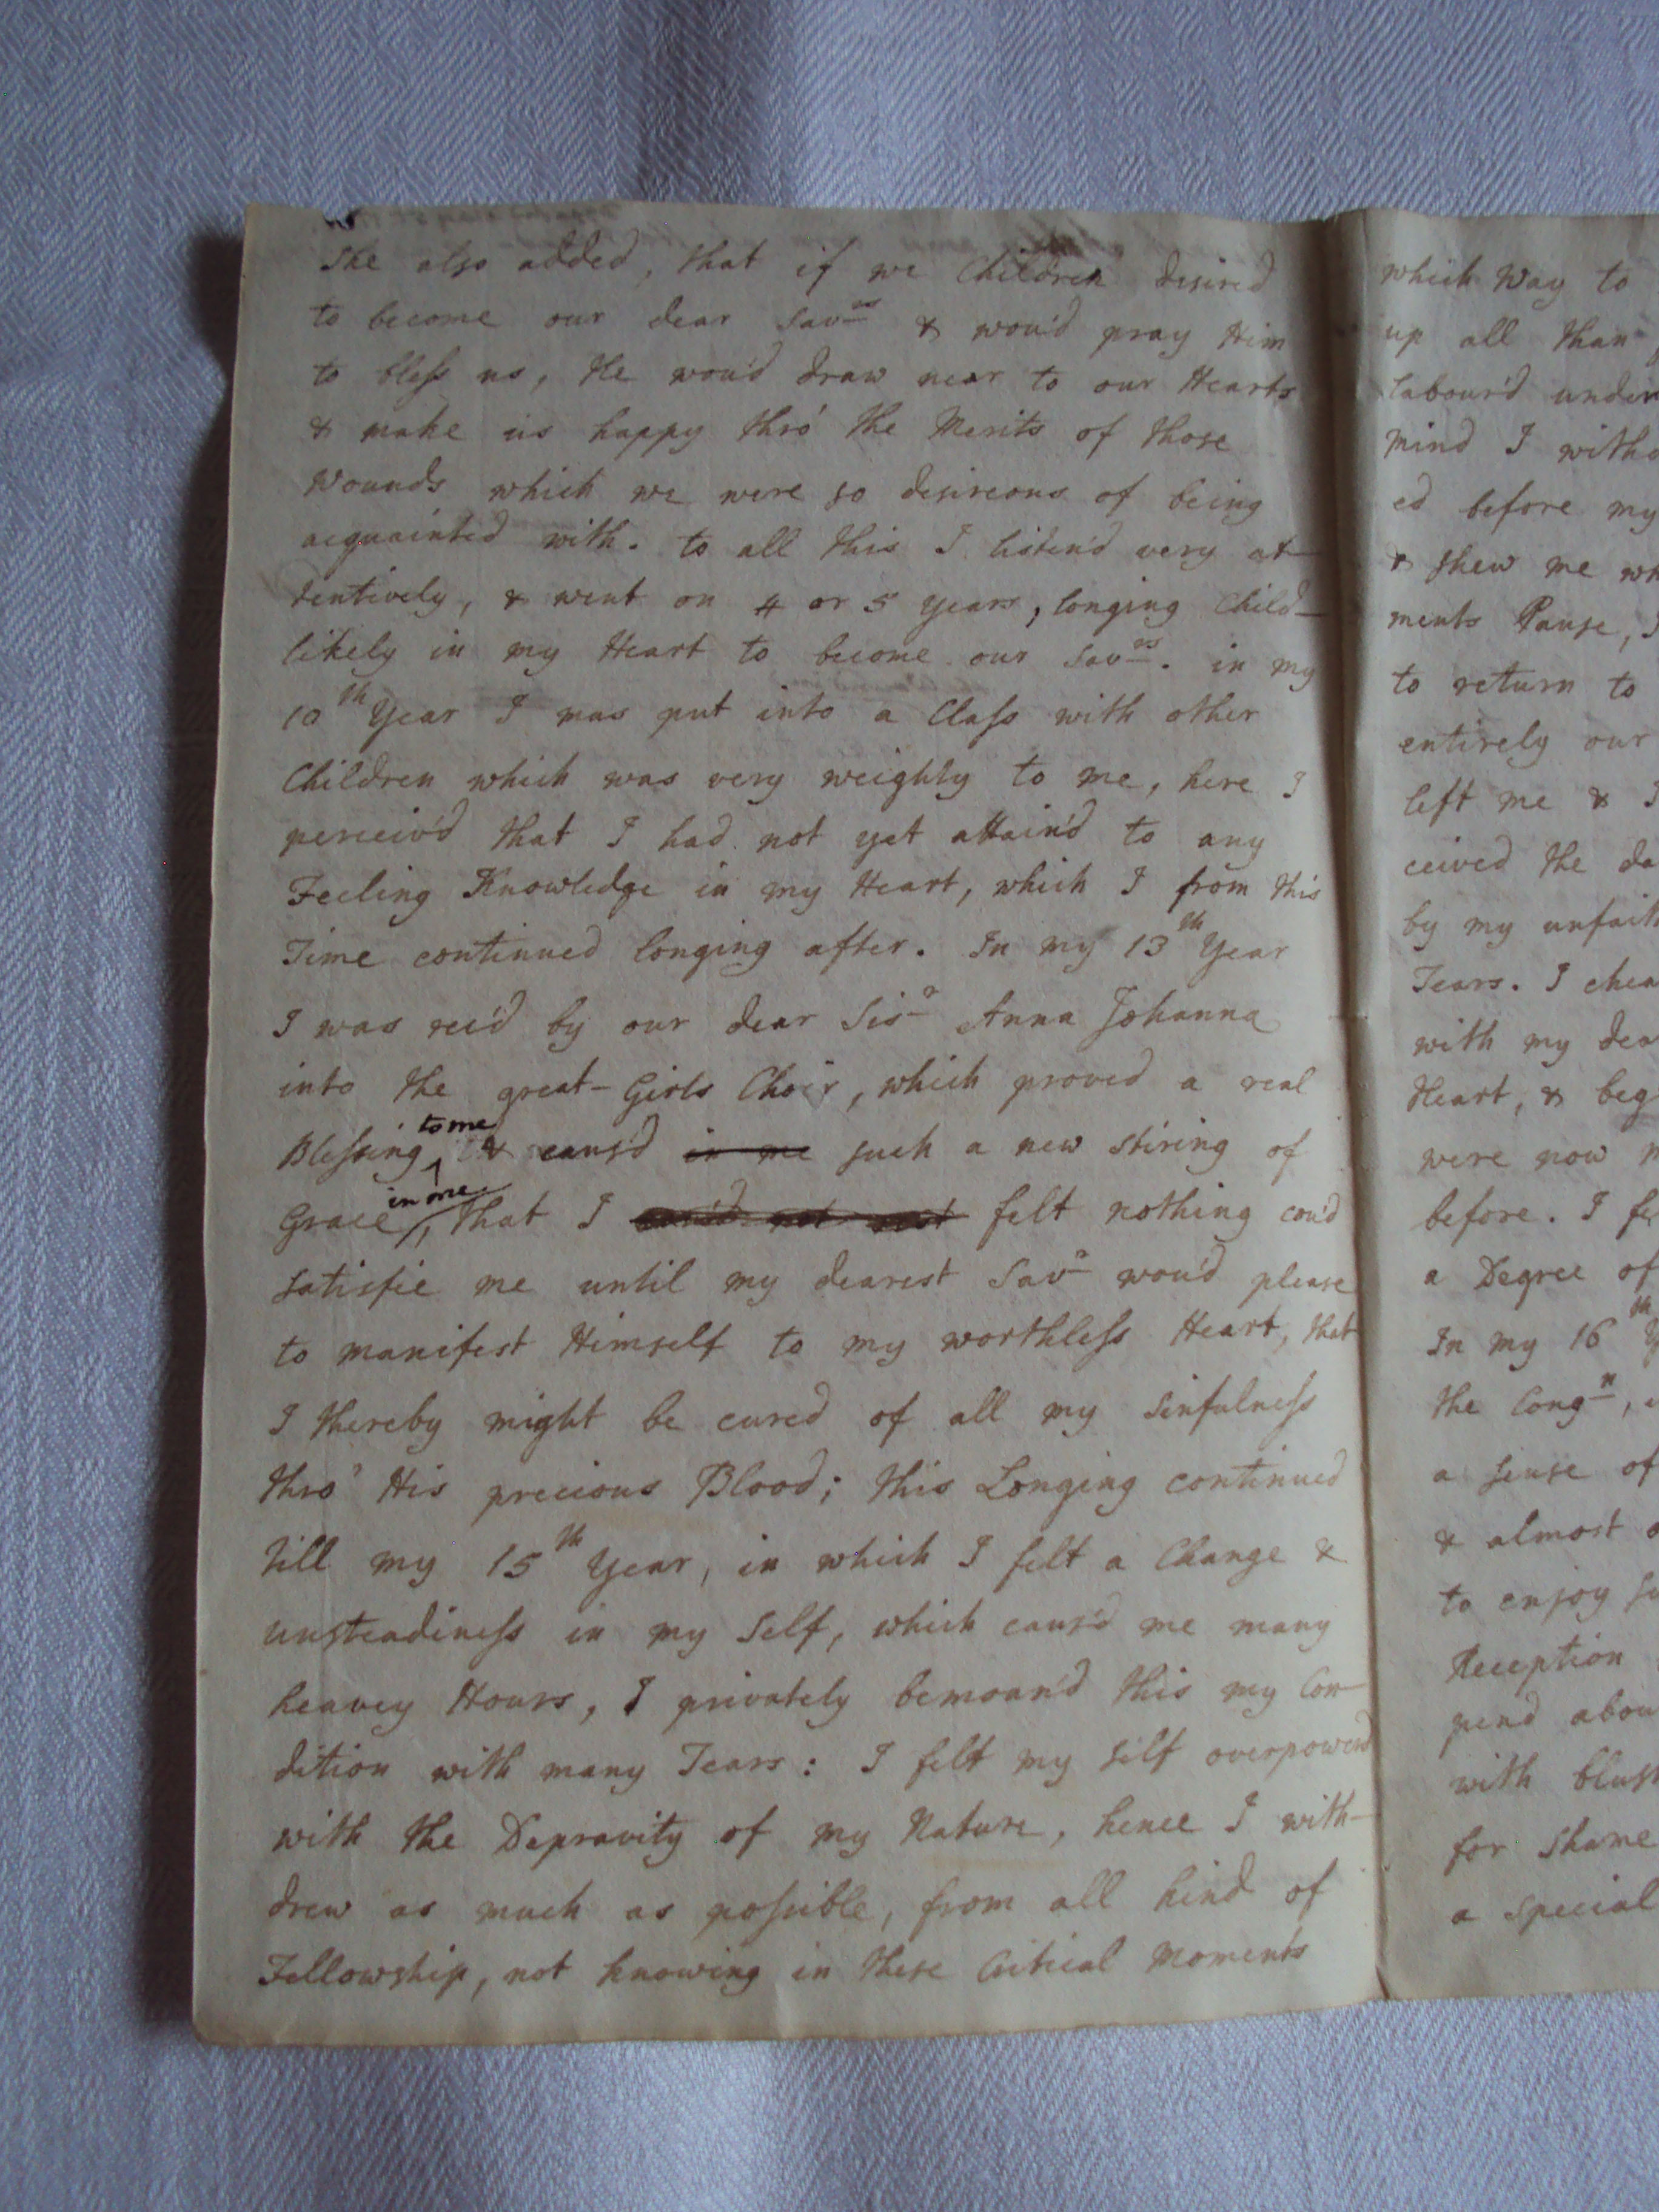 She also added, that if we Children desired
to become our dear Sav^rs & wou'd pray Him
to bless us, He wou'd draw near to our Hearts
& make us happy thro' the Merits of those
Wounds which we were so desireous of being
acquainted with. to all this I listen'd very at-
tentively, & went on 4 or 5 Years, longing Child-
likely in my Heart to become our Sav^rs. in my
10^th Year I was put into a Class with other
Children which was very weighty to me, here I
perceiv'd that I had not yet attain'd to any
Feeling Knowledge in my Heart, which I from this
Time continued longing after. In my 13^th Year
I was rec'd by our dear Sis^r Anna Johanna
into the great-Girls Choir, which proved a real
Blessing to me & caus'd in me such a new stiring of
Grace in me, that I cou'd not rest felt nothing cou'd
satisfie me until my dearest Sav^r wou'd please
to manifest Himself to my worthless Heart, that
I thereby might be cured of all my Sinfulness
thro' His precious Blood; this Longing continued
till my 15^th Year, in which I felt a Change &
unsteadiness in my Self, which caus'd me many
heavey Hours, I privately bemoan'd this my Con-
dition with many Tears: I felt my self overpower'd
with the Depravity of my Nature, hence I with-
drew as much as possible, from all kind of
Fellowship, not knowing in these Critical Moments
which Way to
up all than
labour'd under
mind I witho
ed before my
& shew me wh
ments Pause, I
to return to
entirely our
left me & I
ceived the da
by my unfaith
Tears. I
with my dea
Heart, & beg
were now
before. I
a Degree of
In my 16^th
the Cong^n,
a sense of
& almost
to enjoy
Reception
pend abou
with blush
for Shame
a Special